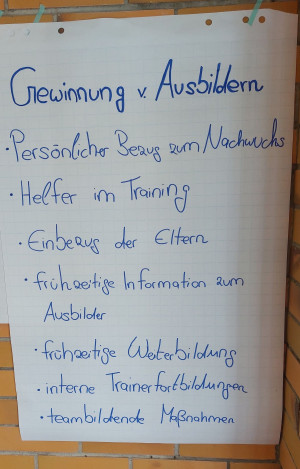 Gewinnung v. Ausbildern
· Persönlicher Bezug zum Nachwuchs
· Helfer im Training
· Einbezug der Eltern
· frühzeitige Information zum
Ausbilder
· frühzeitige Weiterbildung
· interne Trainerfortbildungen
· teambildende Maßnahmen